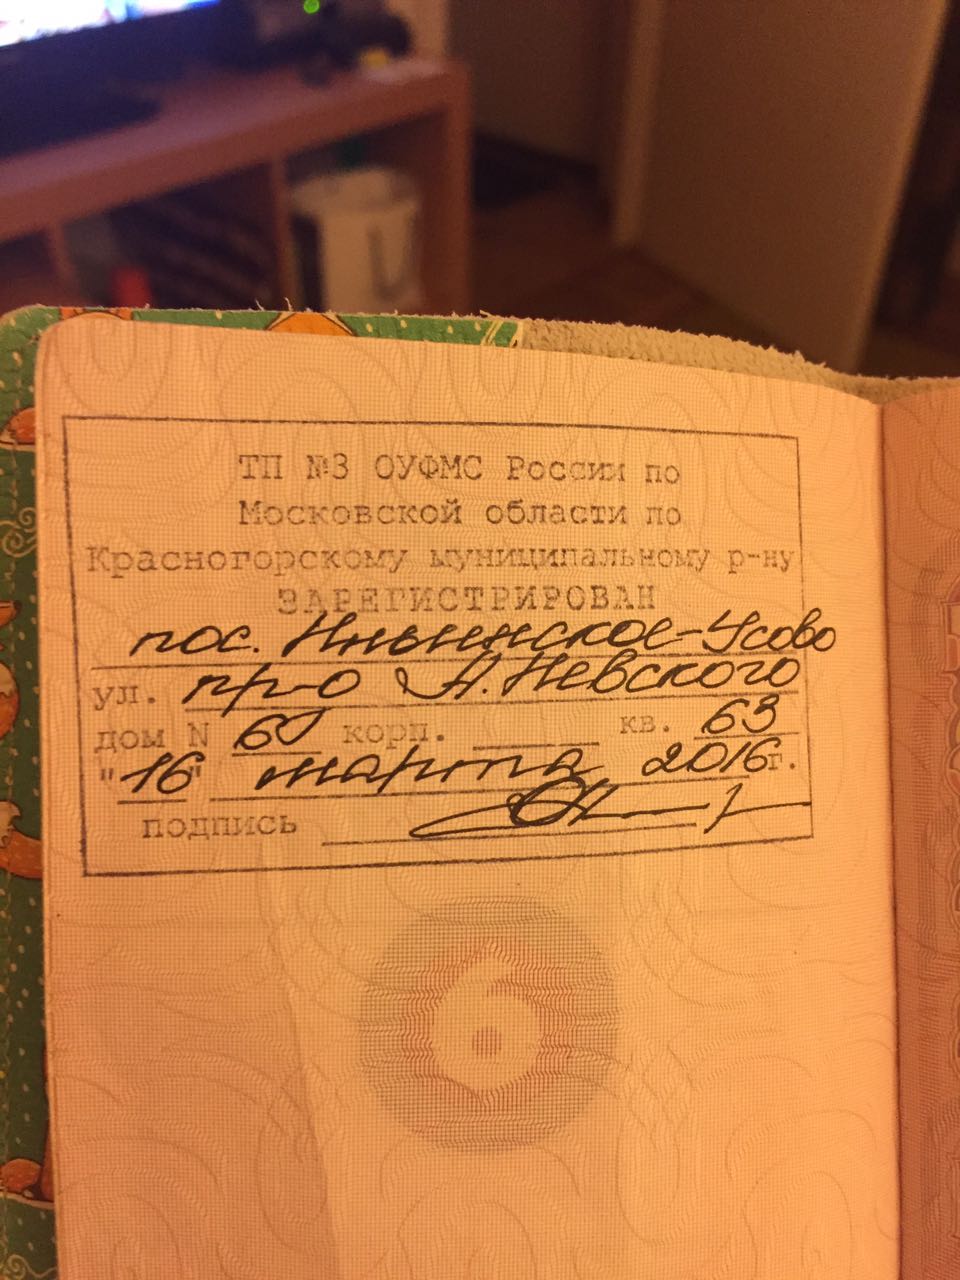 ТП №3 ОУФМС России по
Московской области по
Красногорскому муниципальному р-ну
ЗАРЕГИСТРИРОВАН
пос. Ильинское-Усово
ул. пр-д А.Невского
дом N корп. кв. 63
"16" марта 2016г.
подпись
6